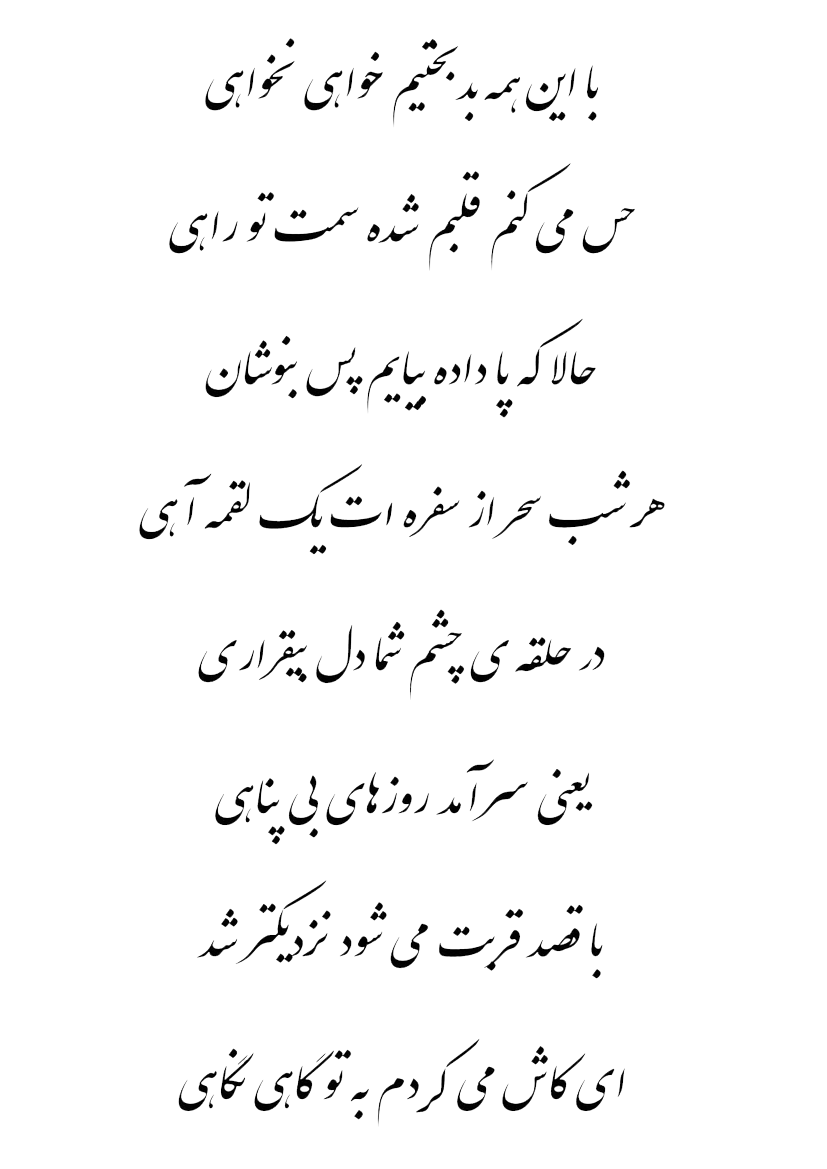 با این همه بد بختیم خواهی نخواهی
حس می کنم قلبم شده سمت تو راهی
حالا که پا داده بیایم پس بنوشان
هر شب سحر از سفره ات یک لقمه آهی
در حلقه ی چشم شما دل بیقراری
یعنی سرآمد روزهای بی پناهی
با قصد قربت می شود نزدیکتر شد
ای کاش می کردم به تو گاهی نگاهی